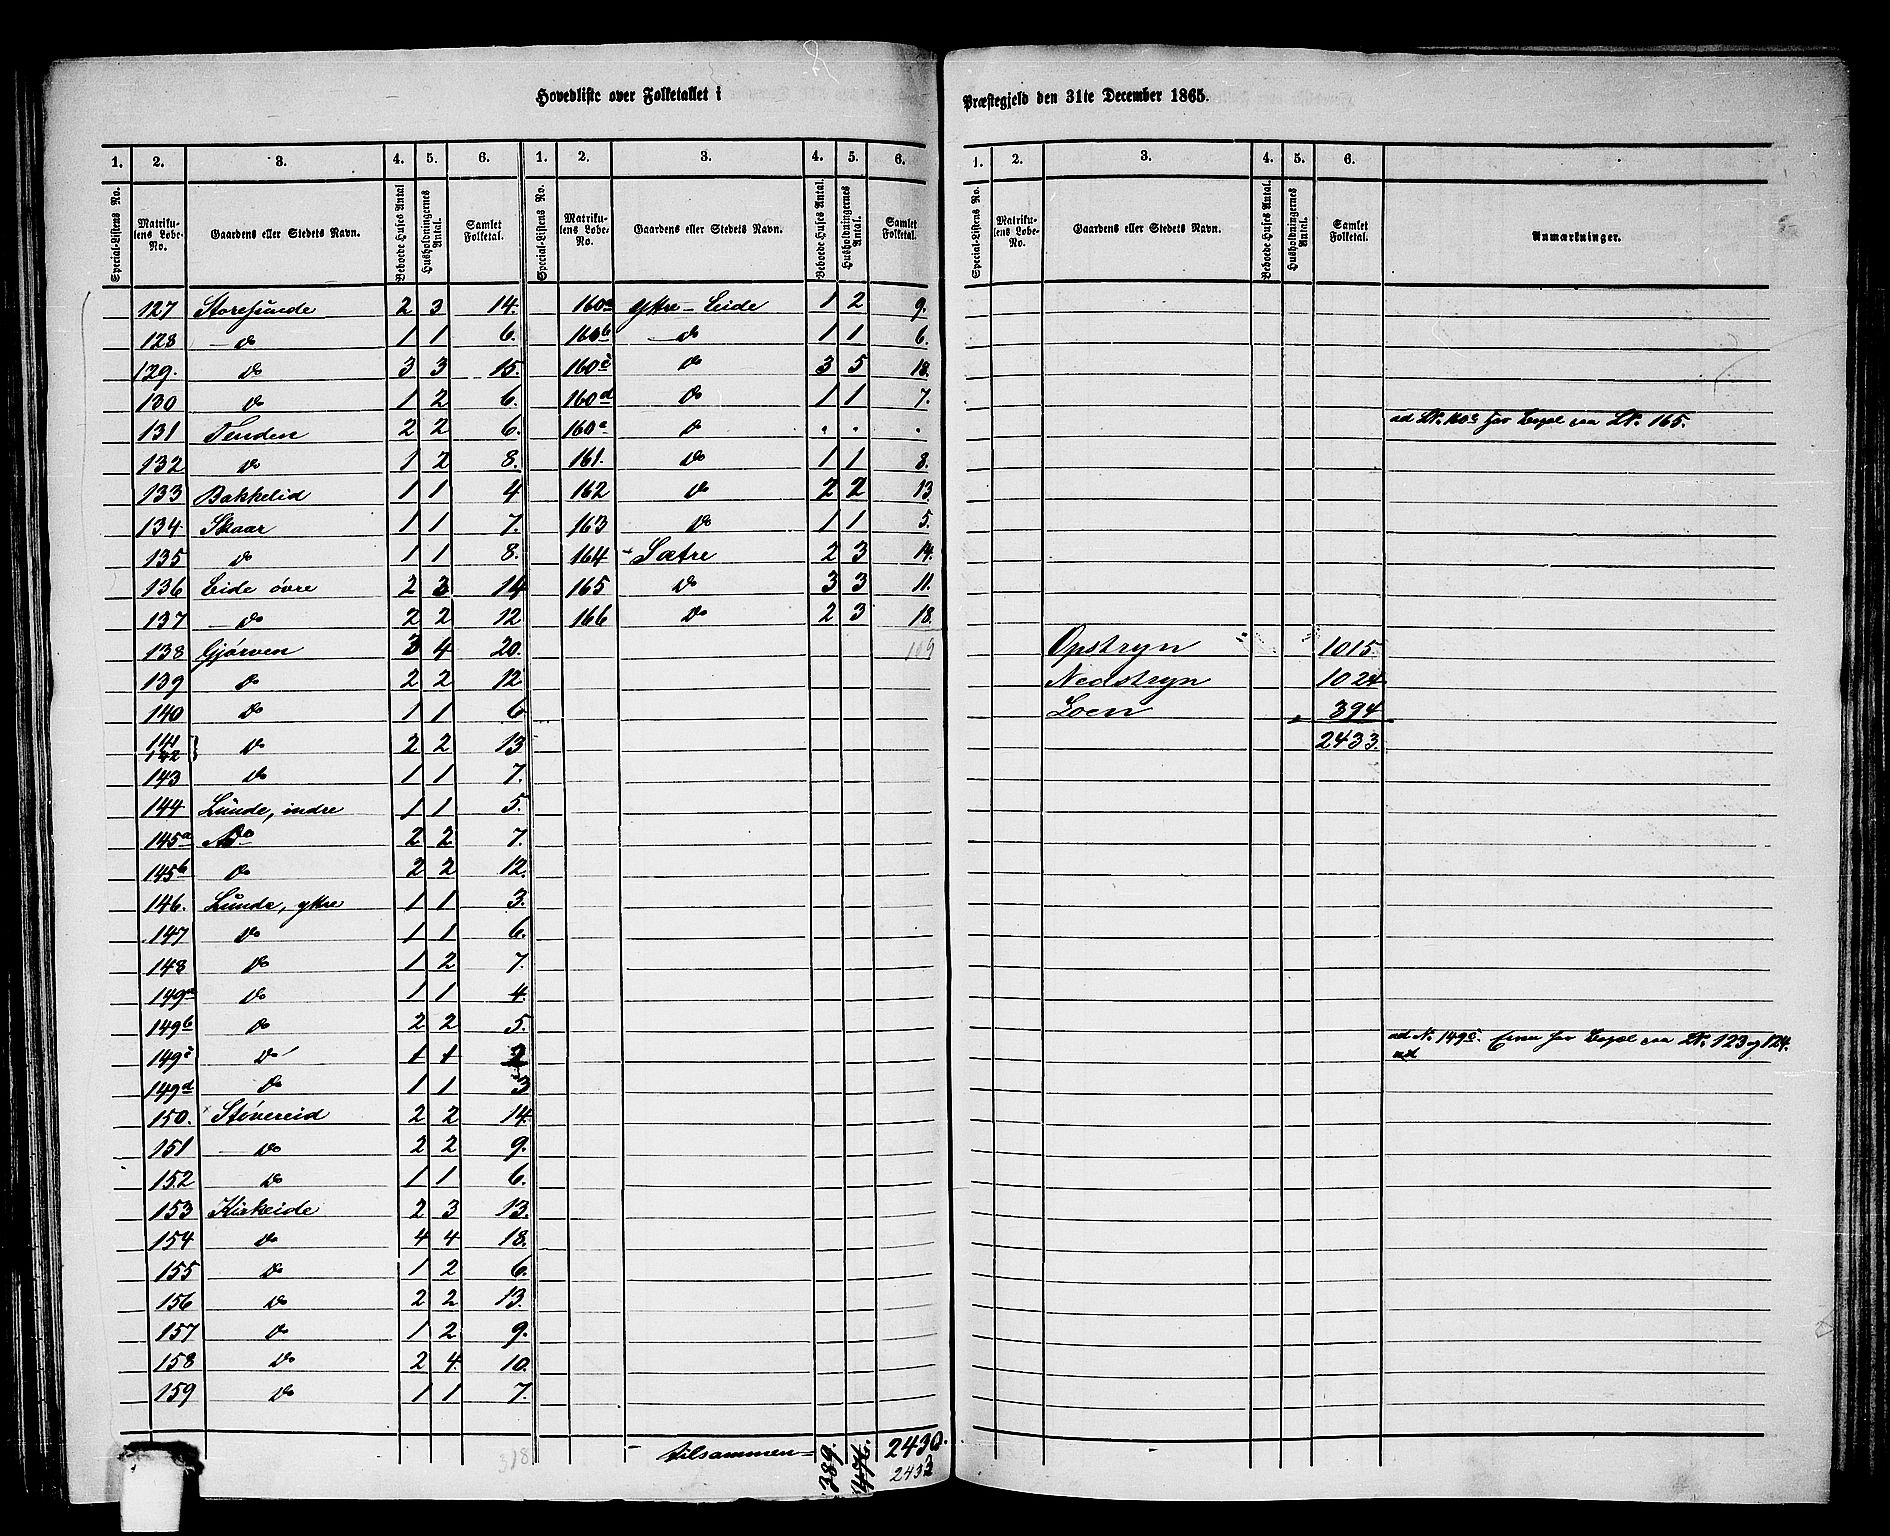 Hovedliste over Folketallet i
Præstegjeld den 31te December 1865.
1. 2. 3. 4. 5. 6. 1. 2. 3. 4. 5. 6.
Special-Listens No. Matrikulens Løbe-No. Gaardens eller Stedets Navn. Beboede Huses Antal Husholdningernes Antal. Samlet Folketal. Special-Listens No. Matrikulens Løbe-No. Gaardens eller Stedets Navn. Beboede Huses Antal. Husholdningernes Antal. Samlet Folketal.
127 Storesunde 2 3 14. 160a Yttre-Eide 1 2 9.
128 - do 1 1 6. 160b - do 1 1 6.
129. do 3 3 15. 160c do 3 5 18.
130 do 1 2 6. 160d do 1 1 7.
131 Tenden 2 2 6. 160e do . . .
132 do 1 2 8. 161. do 1 1 8.
133 Bakkelid 1 1 4 162 do 2 2 13.
134 Skaar 1 1 7. 163 do 1 1 5.
135 do 1 1 8. 164 - Sætre 2 3 14.
136 Eide øvre 2 3 14 165 do 3 3 11.
137 - do 2 2 12 166 do 2 3 18.
138 Gjørven 3 4 20. 109
139 do 2 2 12
140 do 1 1 6
141
142 } do 2 2 13
143 do 1 1 7.
144 Lunde, indre 1 1 5.
145a do 2 2 7.
145b do 2 2 12.
146. Lunde, yttre 1 1 3.
147 do 1 1 6.
148 do 1 2 7.
149a do 1 1 4.
149b do 2 2 5.
149c do 1 1 2
149d do 1 1 3
150. Støvereid 2 2 14.
151 - do 2 2 9.
152 do 1 1 6.
153 Kirkeide 2 3 13.
154 do 4 4 18.
155 do 1 2 6.
156 do 2 2 13.
157 do 1 2 9.
158 do 2 4. 10.
159 do 1 1 7.
318
- tilsammen = 389. 476. 2430.
2433
1. 2. 3. 4. 5. 6.
Special-Listens No. Matrikulens Løbe-No. Gaardens eller Stedets Navn. Beboede Huses Antal. Husholdningernes Antal. Samlet Folketal. Anmærkninger.
ad 160e har Bopæl paa 165.
Opstryn 1015.
Nedstryn 1024
Loen 394
2433.
ad N. 149c. har Bopæl paa 123 og 124.